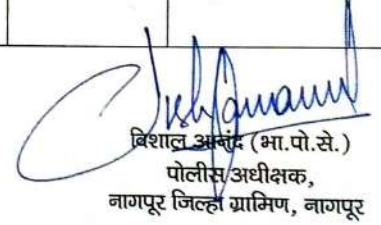 विशाल आनंद (भा.पो.से.)
पोलीस अधीक्षक,
नागपूर जिल्हा ग्रामिण, नागपूर